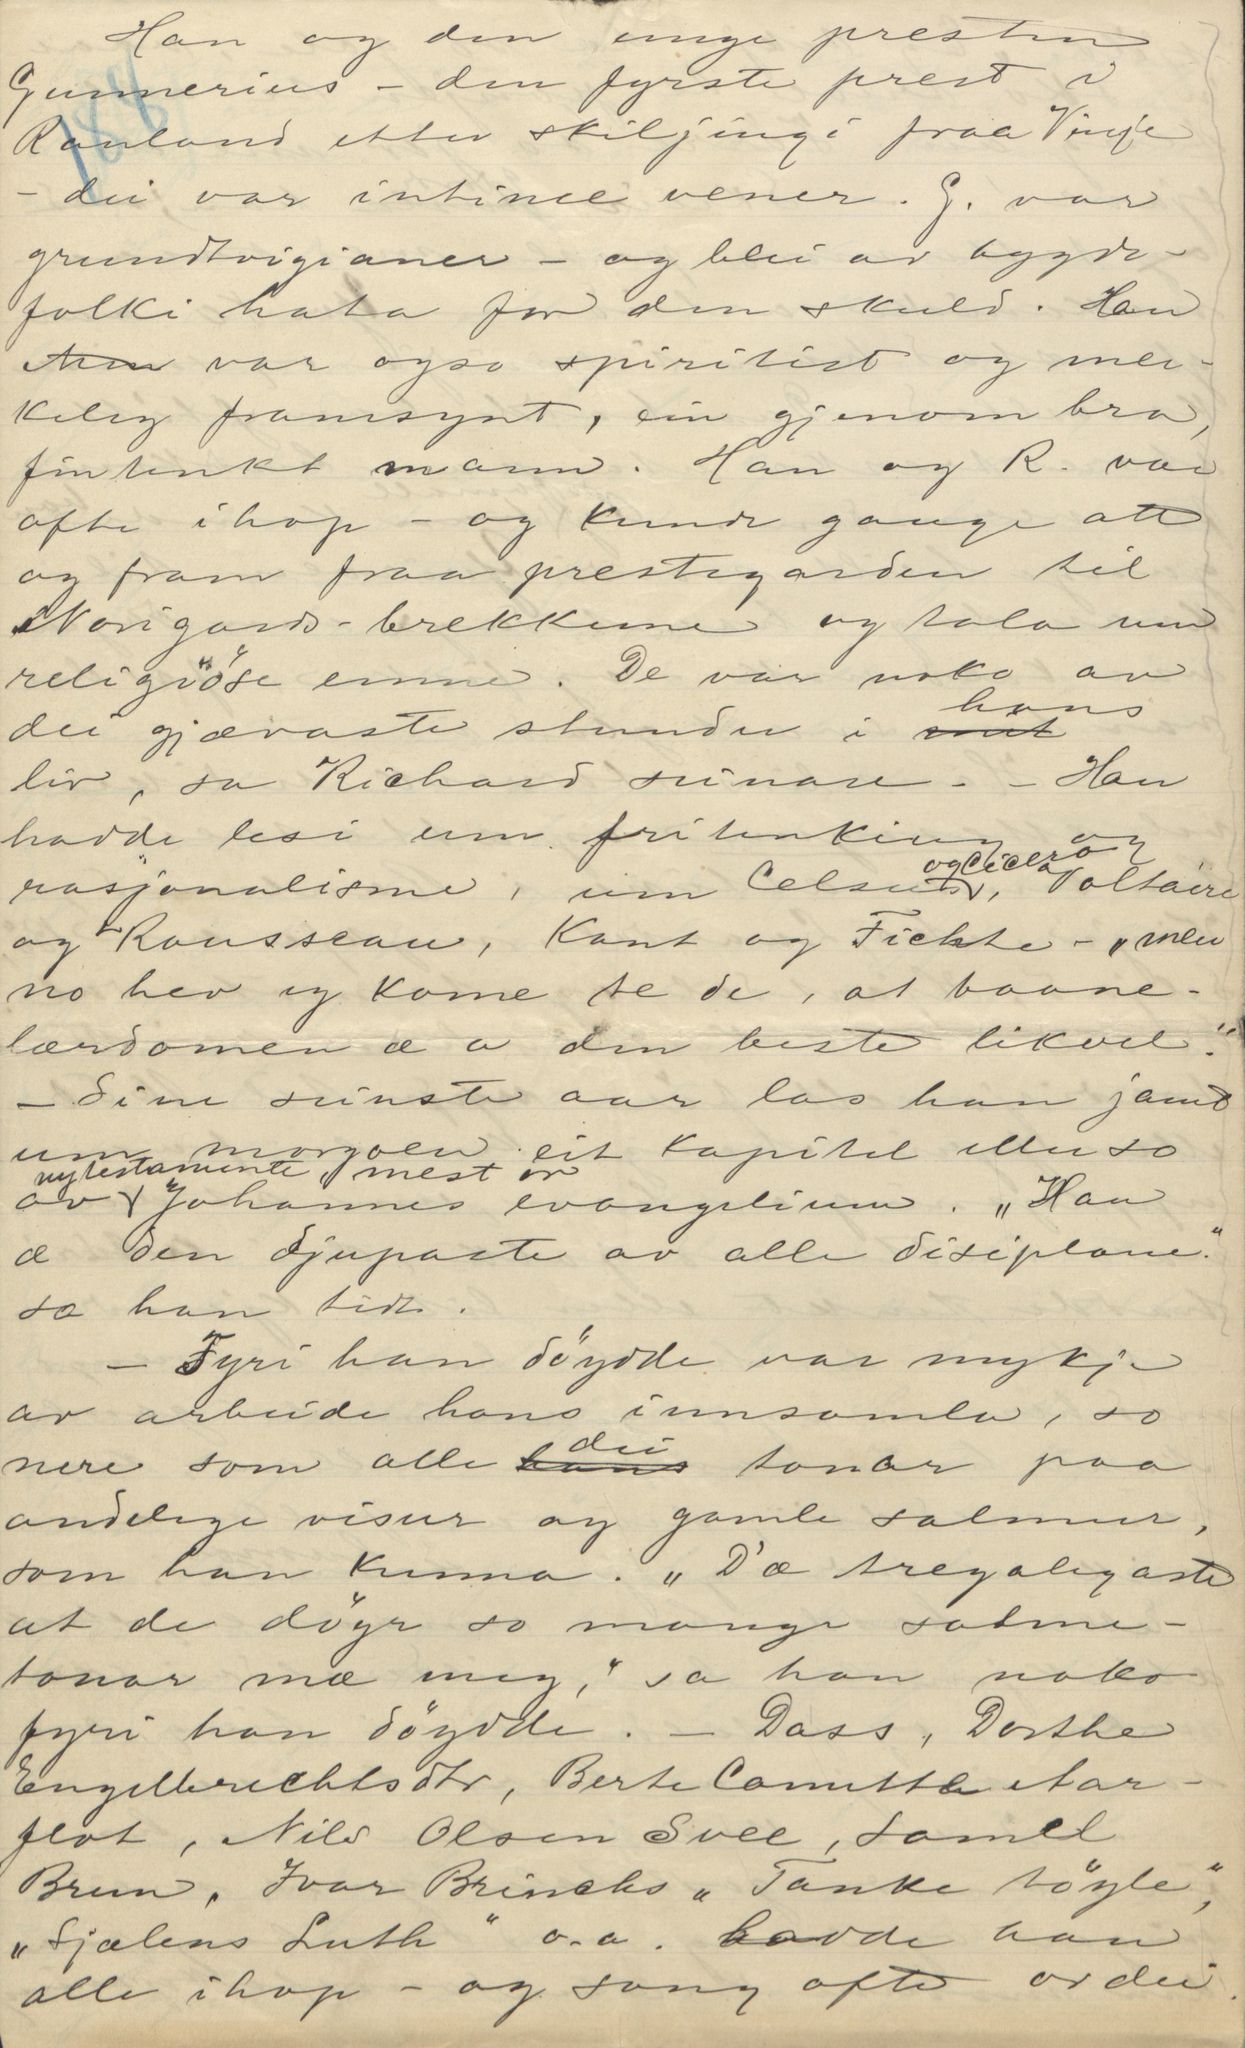 Han og den unge presten
Gunnerius - den fyrste prest i
Rauland etter skiljingi fraa Vinje
- dei var intime vener. G. var
grundtvigianer - og blei av bygde-
folki hata for den skuld. Han
var ogso spiritist og mer-
keleg framsynt, ein gjenom bra,
fintenkt mann. Han og R. var
ofte ihop - og kunde gange att
og fram fraa prestegarden til
Norigards-brekkune og tala um
religiöse emne. De var noko av
dei gjævaste stunder i hans
liv, sa Richard seinare. - Han
hadde lesi um fritenking og
rasjonalisme, um Celsus og Cicero, Voltaire
og Rousseau, Kant og Fichte - „men
no hev eg kome te de, at baane-
lærdomen æ a den beste likvel."
- Sine seinste aar las han jamt
um morgoen eit kapitel eller so
av nytestamente, mest or Johannes evangelium. „Han
æ den djupaste av alle disiplane."
sa han tidt.
- Fyri han döydde var mykje
av arbeide hans innsamla, so
nere som alle dei tonar paa
andelege visur og gamle salmur,
som han kunna. „D'æ tregalegaste
at de döyr so mange salme-
tonar mæ meg," sa han noko
fyri han döydde. - Dass, Dorthe
Engelbrechtsdtr, Berte Canutte Aar-
flot, Nils Olsen Svee, Samel
Brun, Ivar Brincks „Tanke töyle",
„Sjælens Luth" o.a. hadde han
alle ihop - og song ofte or dei.